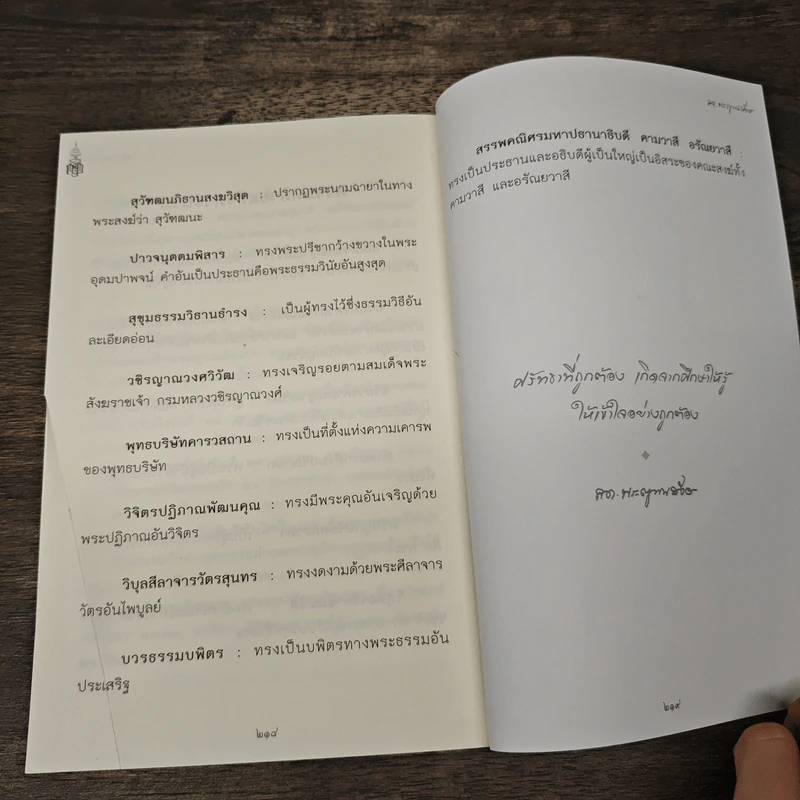 สุวัฑฒนภิธานสงฆวิสุต : ปรากฏพระนามฉายาในทาง
พระสงฆ์ว่า สุวัฑฒนะ
ปาวจนุตตมพิสาร : ทรงพระปรีชากว้างขวางในพระ
อุดมปาพจน์ คำอันเป็นประธานคือพระธรรมวินัยอันสูงสุด
สุขุมธรรมวิธานธำรง : เป็นผู้ทรงไว้ซึ่งธรรมวิธีอัน
ละเอียดอ่อน
วชิรญาณวงศวิวัฒ : ทรงเจริญรอยตามสมเด็จพระ
สังฆราชเจ้า กรมหลวงวชิรญาณวงศ์
พุทธบริษัทคารวสถาน : ทรงเป็นที่ตั้งแห่งความเคารพ
ของพุทธบริษัท
วิจิตรปฏิภาณพัฒนคุณ : ทรงมีพระคุณอันเจริญด้วย
พระปฏิภาณอันวิจิตร
วิบุลสีลาจารวัตรสุนทร : ทรงงดงามด้วยพระศีลาจาร
วัตรอันไพบูลย์
บวรธรรมบพิตร : ทรงเป็นบพิตรทางพระธรรมอัน
ประเสริฐ
๒๑๘
สรรพคณิศรมหาปธานาธิบดี คามวาสี อรัณยวาสี :
ทรงเป็นประธานและอธิบดีผู้เป็นใหญ่เป็นอิสระของคณะสงฆ์ทั้ง
คามวาสี และอรัณยวาสี
ศรัทธาที่ถูกต้อง เกิดจากศึกษาให้รู้
ให้เข้าใจอย่างถูกต้อง
๒๑๙